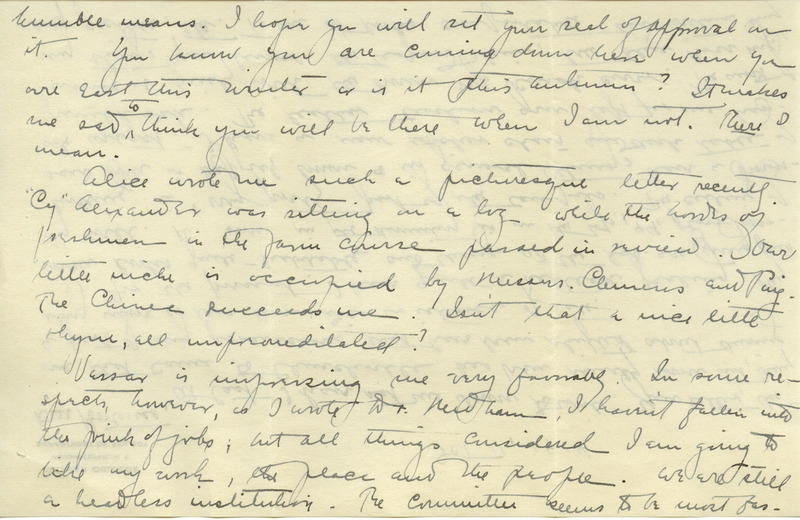 humble means. I hope you will set your seal of approval on
it. You know you are coming down here when you
are east this winter or is it this autumn? It makes
me sad to think you will be there when I am not. There I
mean.
Alice wrote me such a picturesque letter recently.
"Cy" Alexander was sitting on a log while the hordes of
freshmen in the farm course passed in review. Our
little niche is occupied by Messrs. Clemens and Puig.
The Chinee succeeds me. Isn't that a nice little
rhyme, all unpremeditated?
Vassar is impressing me very favorably. In some re-
spects, however, as I wrote Dr. Needham, I haven't fallen into
the pink of jobs; but all things considered I am going to
like my work, the place and the people. We are still
a headless institution. The Committee seems to be most fas-